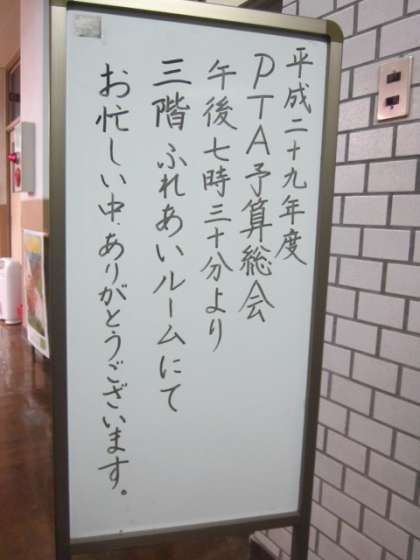 平成二十九年度
PTA予算総会
午後七時三十分より
三階ふれあいルームにて
お忙しい中、ありがとうございます。